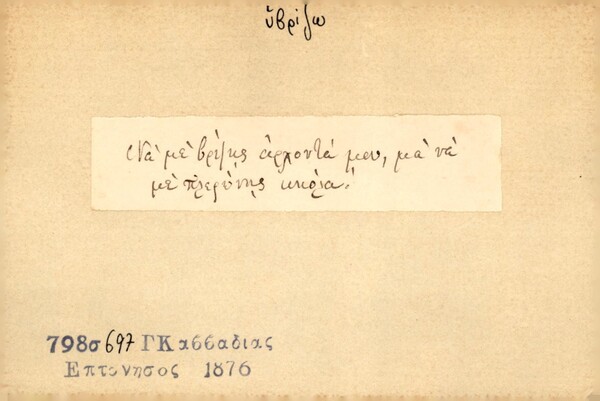 ὑβρίζω
Νὰ μὲ βρίζῃς ἄρχοντά μου, μὰ νὰ
μὲ πλερώνῃς
798σ 697 ΓΚαββαδιας
Επτονησος 1876